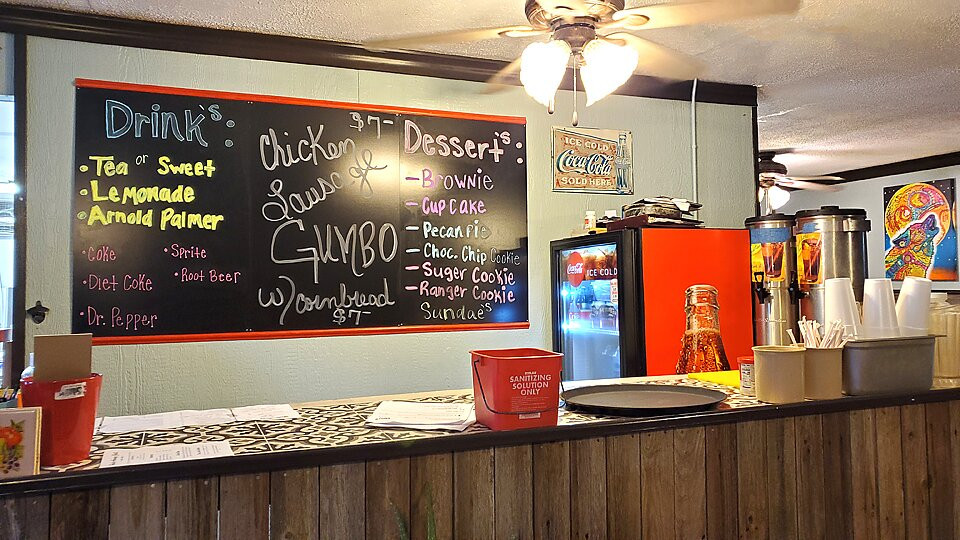 Drink's:
• Tea or Sweet
• Lemonade
• Arnold Palmer
• Coke
• Sprite
• Diet Coke
• Root Beer
• Dr. Pepper
$7-
Chicken
Sausage
GUMBO
w/cornbread
$7-
Dessert's:
- Brownie
- Cup Cake
- Pecan Pie
- Choc. Chip Cookie
- Suger Cookie
- Ranger Cookie
Sundae's
ICE COLD
Coca-Cola
SOLD HERE
Coca-Cola
ICE COLD
SANITIZING
SOLUTION
ONLY